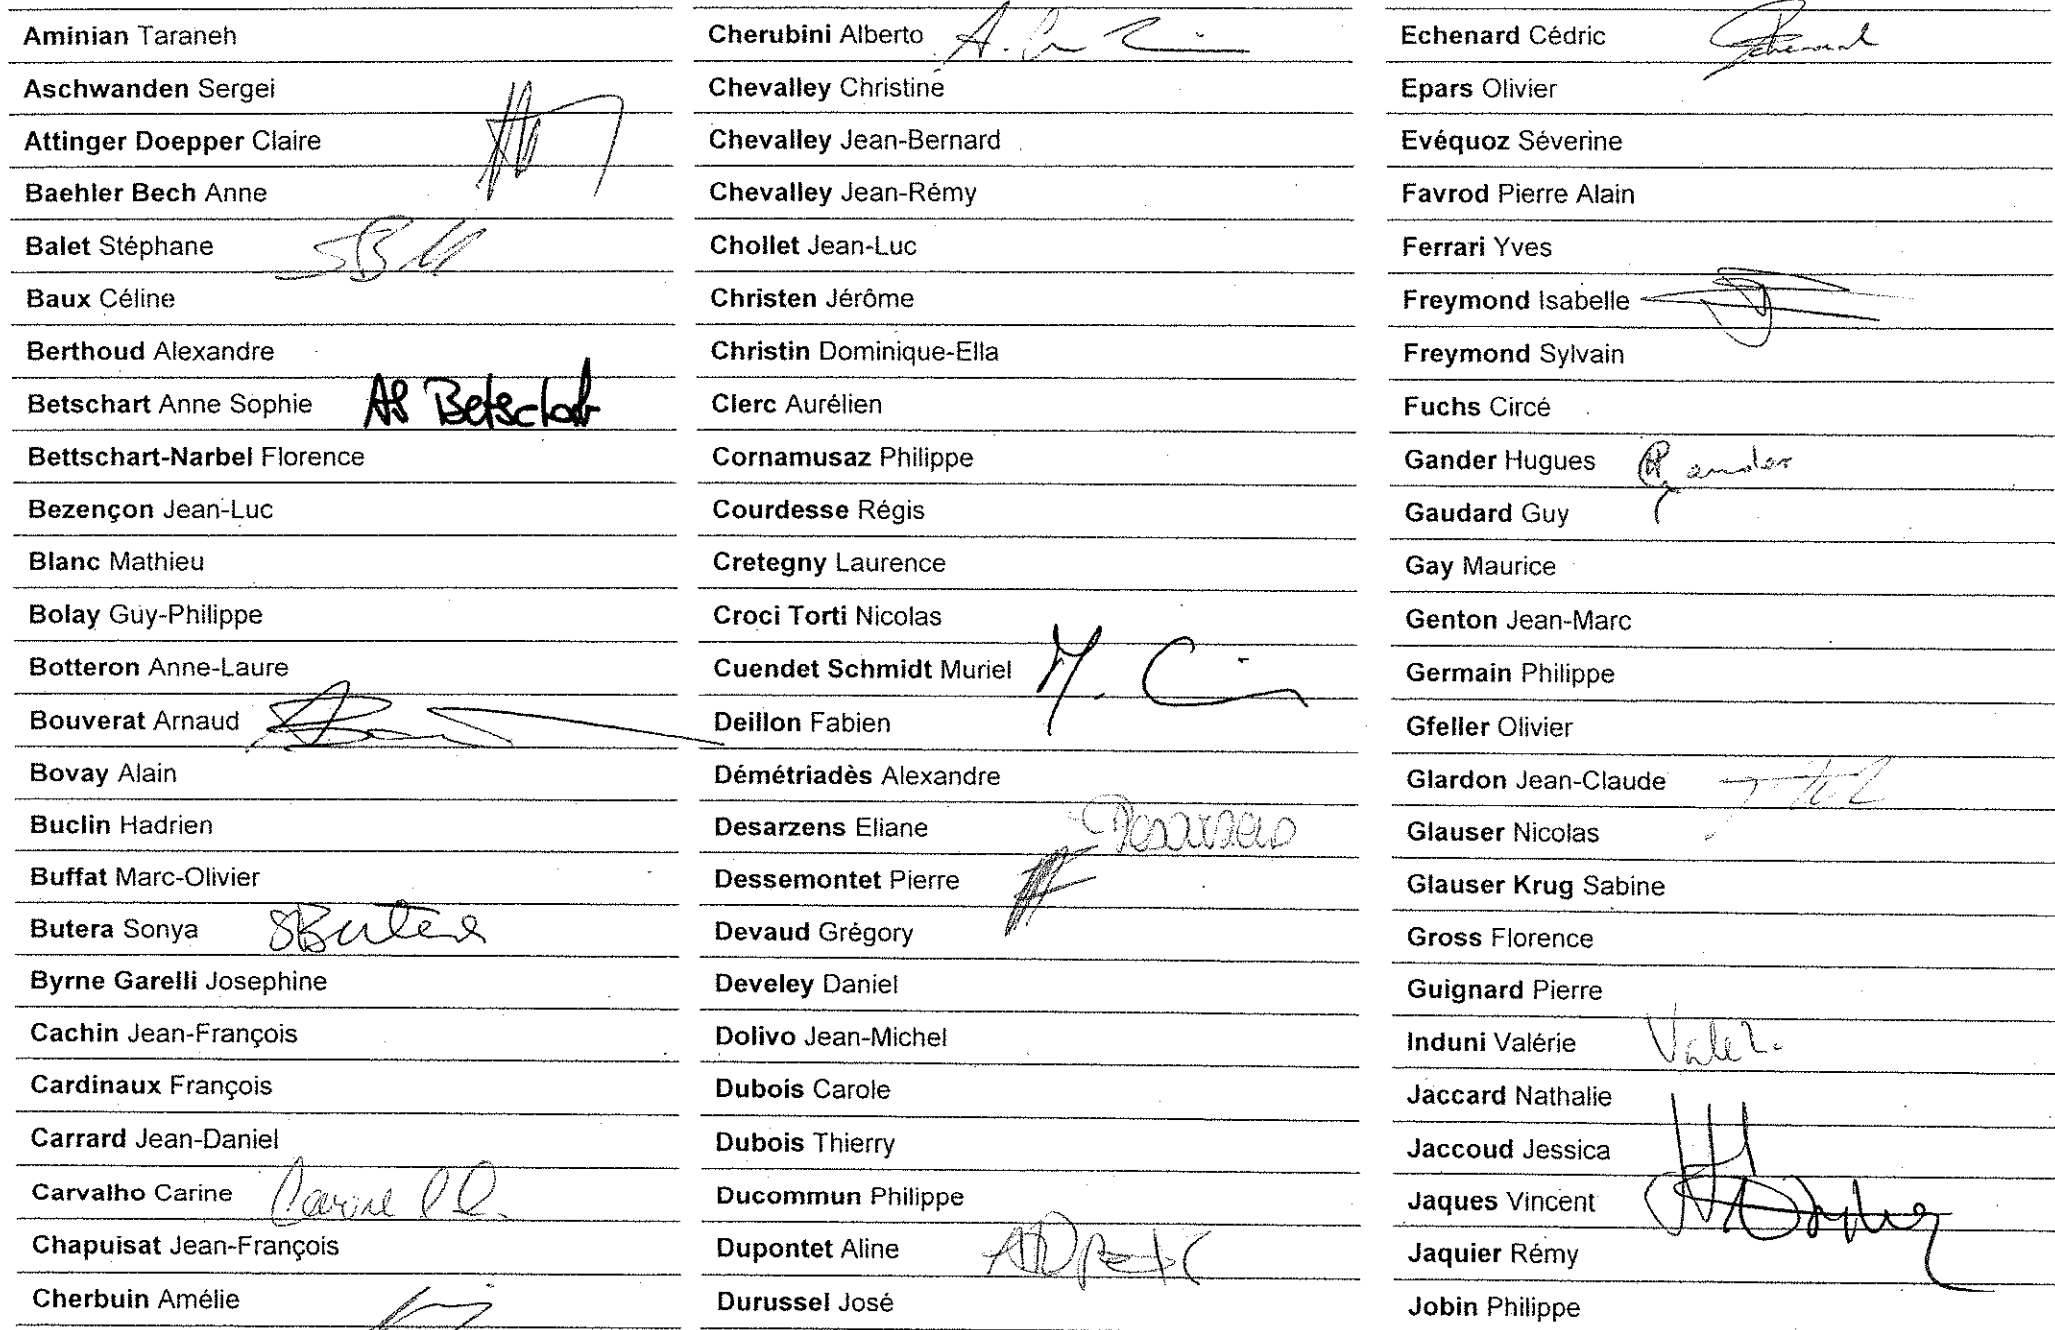 Aminian Taraneh
Aschwanden Sergei
Attinger Doepper Claire
Baehler Bech Anne
Balet Stéphane
Baux Céline
Berthoud Alexandre
Betschart Anne Sophie AS Betschart
Bettschart-Narbel Florence
Bezençon Jean-Luc
Blanc Mathieu
Bolay Guy-Philippe
Botteron Anne-Laure
Bouverat Arnaud
Bovay Alain
Buclin Hadrien
Buffat Marc-Olivier
Butera Sonya SButera
Byrne Garelli Josephine
Cachin Jean-François
Cardinaux François
Carrard Jean-Daniel
Carvalho Carine Carine
Chapuisat Jean-François
Cherbuin Amélie
Cherubini Alberto
Chevalley Christine
Chevalley Jean-Bernard
Chevalley Jean-Rémy
Chollet Jean-Luc
Christen Jérôme
Christin Dominique-Ella
Clerc Aurélien
Cornamusaz Philippe
Courdesse Régis
Cretegny Laurence
Croci Torti Nicolas
Cuendet Schmidt Muriel
Deillon Fabien
Démétriadès Alexandre
Desarzens Eliane Desarzens
Dessemontet Pierre
Devaud Grégory
Develey Daniel
Dolivo Jean-Michel
Dubois Carole
Dubois Thierry
Ducommun Philippe
Dupontet Aline
Durussel José
Echenard Cédric Echenard
Epars Olivier
Evéquoz Séverine
Favrod Pierre Alain
Ferrari Yves
Freymond Isabelle
Freymond Sylvain
Fuchs Circé
Gander Hugues Gander
Gaudard Guy
Gay Maurice
Genton Jean-Marc
Germain Philippe
Gfeller Olivier
Glardon Jean-Claude
Glauser Nicolas
Glauser Krug Sabine
Gross Florence
Guignard Pierre
Induni Valérie
Jaccard Nathalie
Jaccoud Jessica
Jaques Vincent
Jaquier Rémy
Jobin Philippe